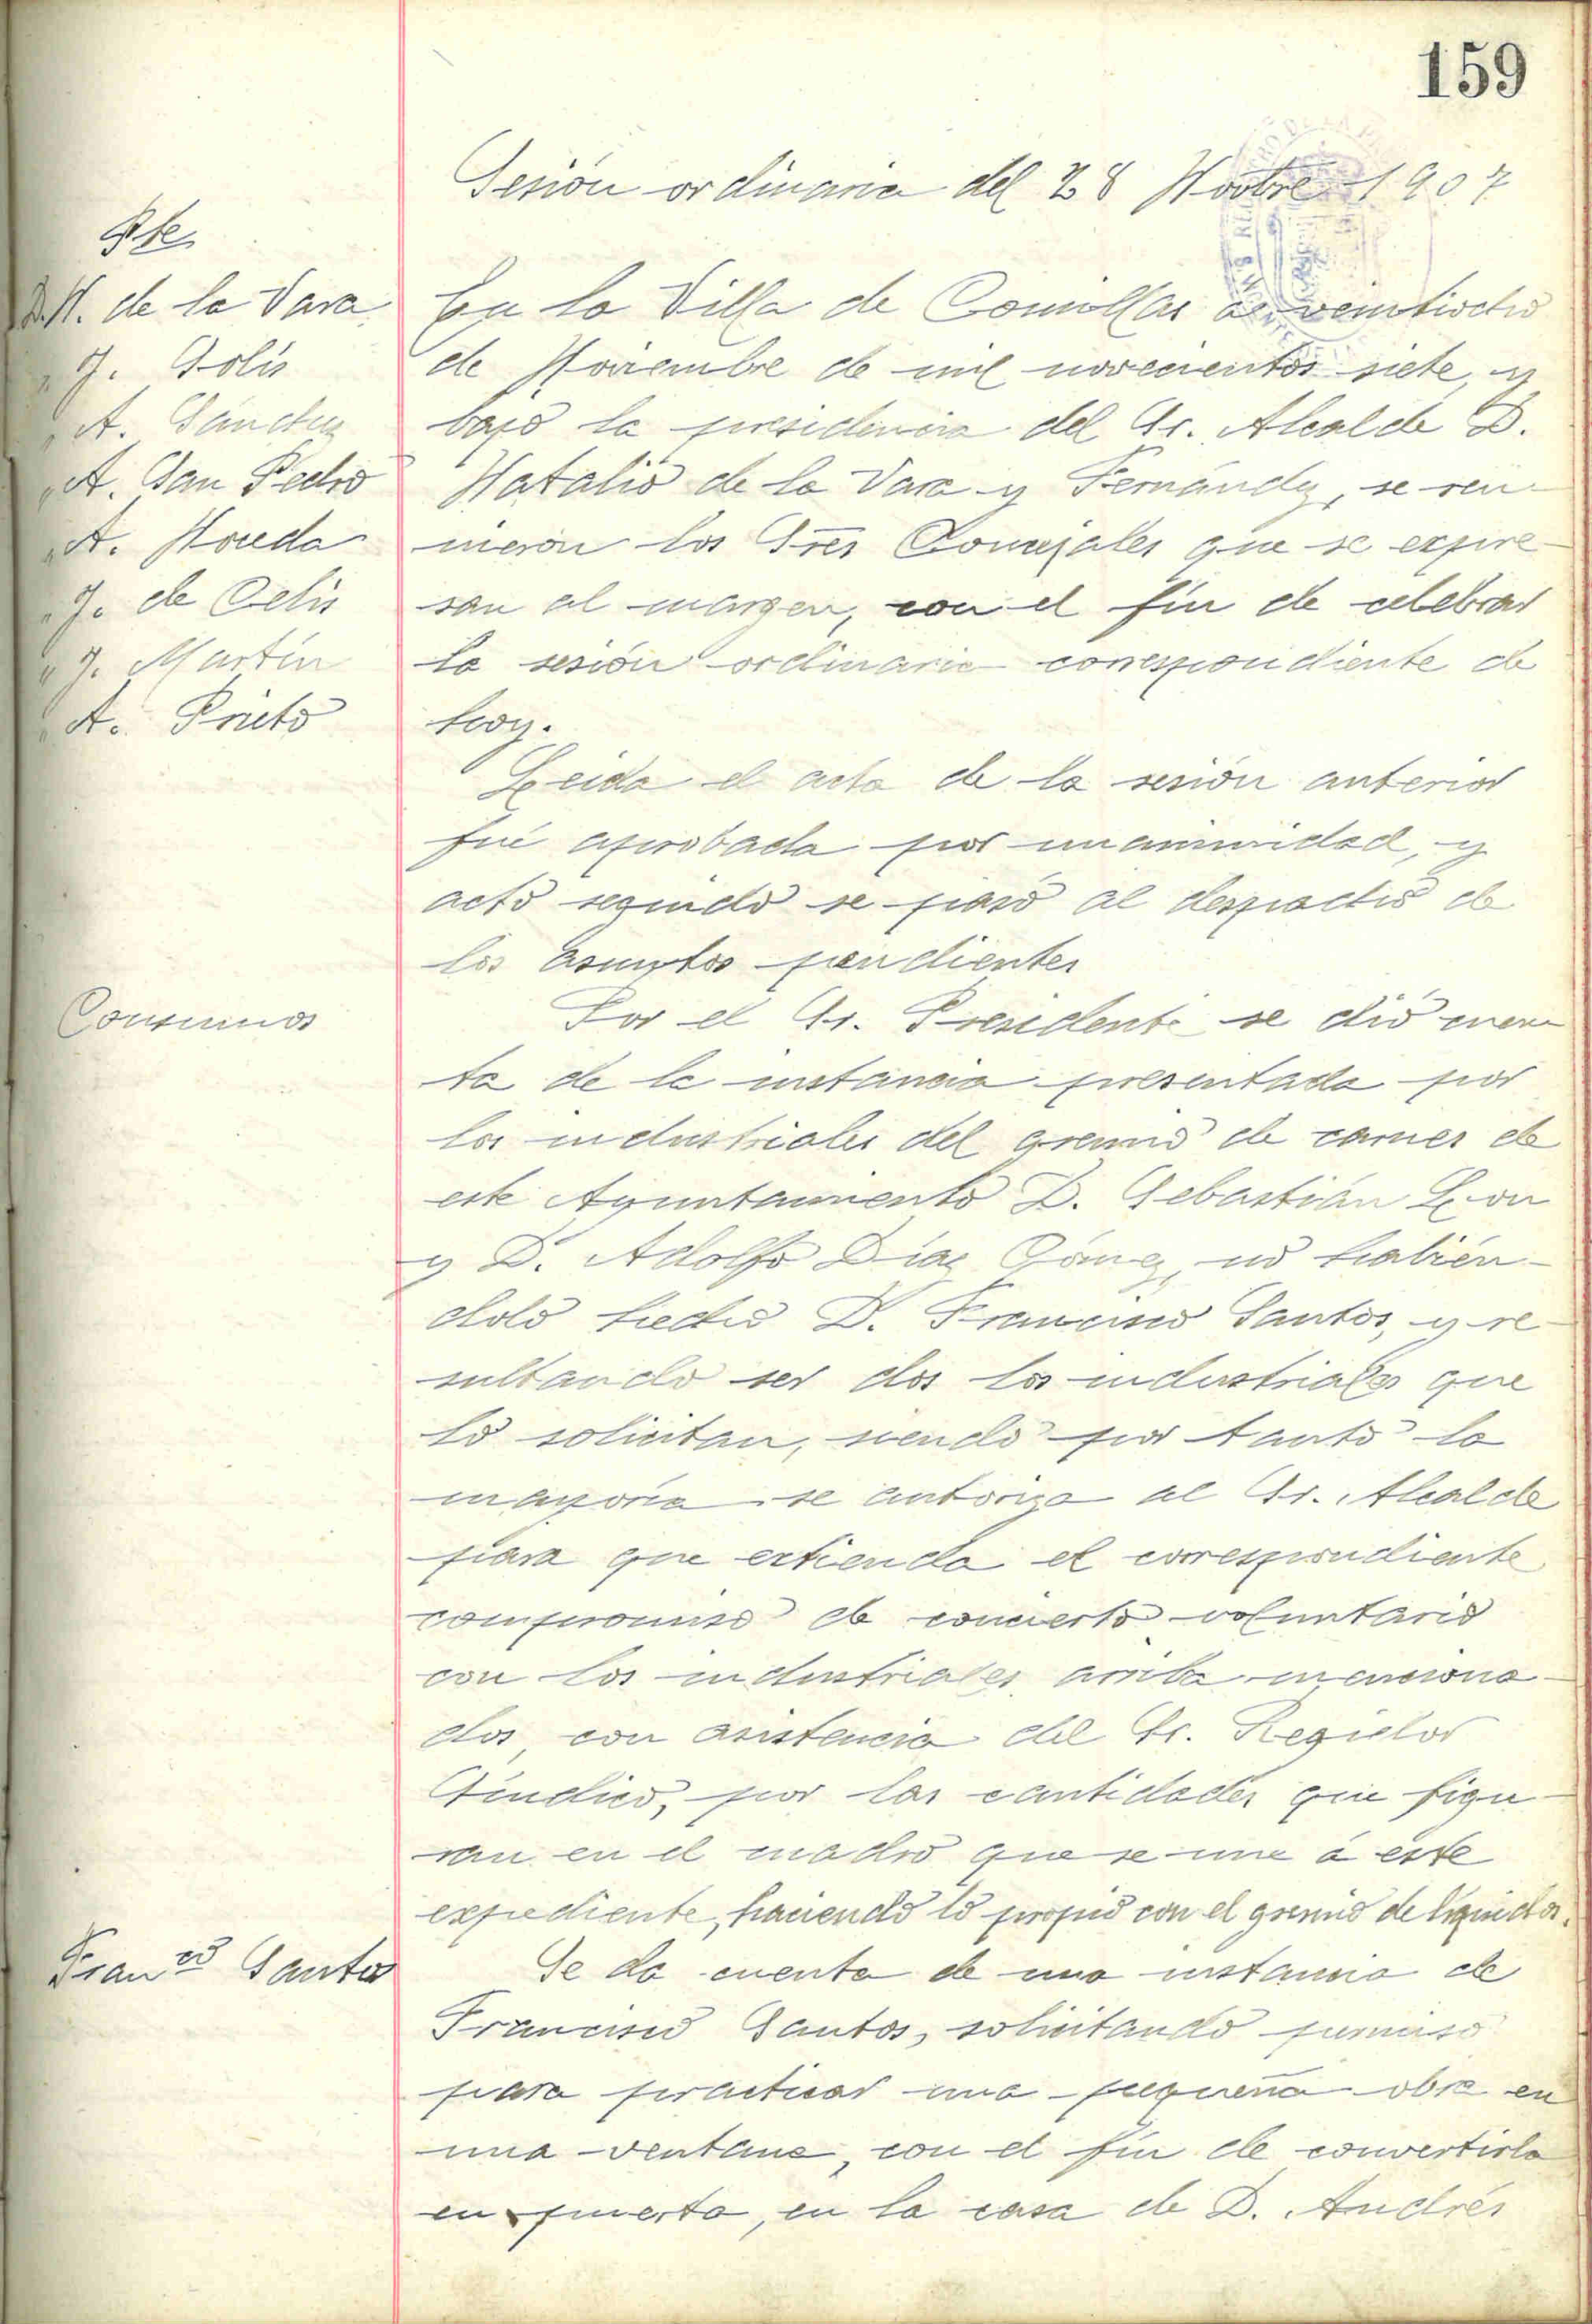 159
Sesión ordinaria del 28 Novbre 1907
Pte
D. N. de la Vara
" J. Solís
" A. Sánchez
" A. San Pedro
" A. Noreda
" J. de Celis
" J. Martín
" A. Prieto
En la Villa de Comillas a veintiocho
de Noviembre de mil novecientos siete, y
bajo la presidencia del Sr. Alcalde D.
Natalio de la Vara y Fernández, se reu-
nieron los Sres Concejales que se expre-
san al margen, con el fin de celebrar
la sesión ordinaria correspondiente de
hoy.
Leida el acta de la sesión anterior
fué aprobada por unanimidad, y
acto seguido se pasó al despacho de
los asuntos pendientes
Consumos
Por el Sr. Presidente se dió cuen-
ta de la instancia presentada por
los industriales del gremio de carnes de
este Ayuntamiento D. Sebastián Leon
y D. Adolfo Díaz Gómez, no habién-
dolo hecho D. Francisco Santos, y re-
sultando ser dos los industriales que
lo solicitan, siendo por tanto la
mayoría se autoriza al Sr. Alcalde
para que extienda el correspondiente
compromiso de concierto voluntario
con los industriales arriba menciona-
dos, con asistencia del Sr. Regidor
Síndico, por las cantidades que figu-
ran en el cuadro que se une á este
expediente, haciendo lo propio con el gremio de líquidos.
Franco Santos
Se da cuenta de una instancia de
Francisco Santos, solicitando permiso
para practicar una pequeña obra en
una ventana, con el fin de convertirla
en puerta, en la casa de D. Andrés